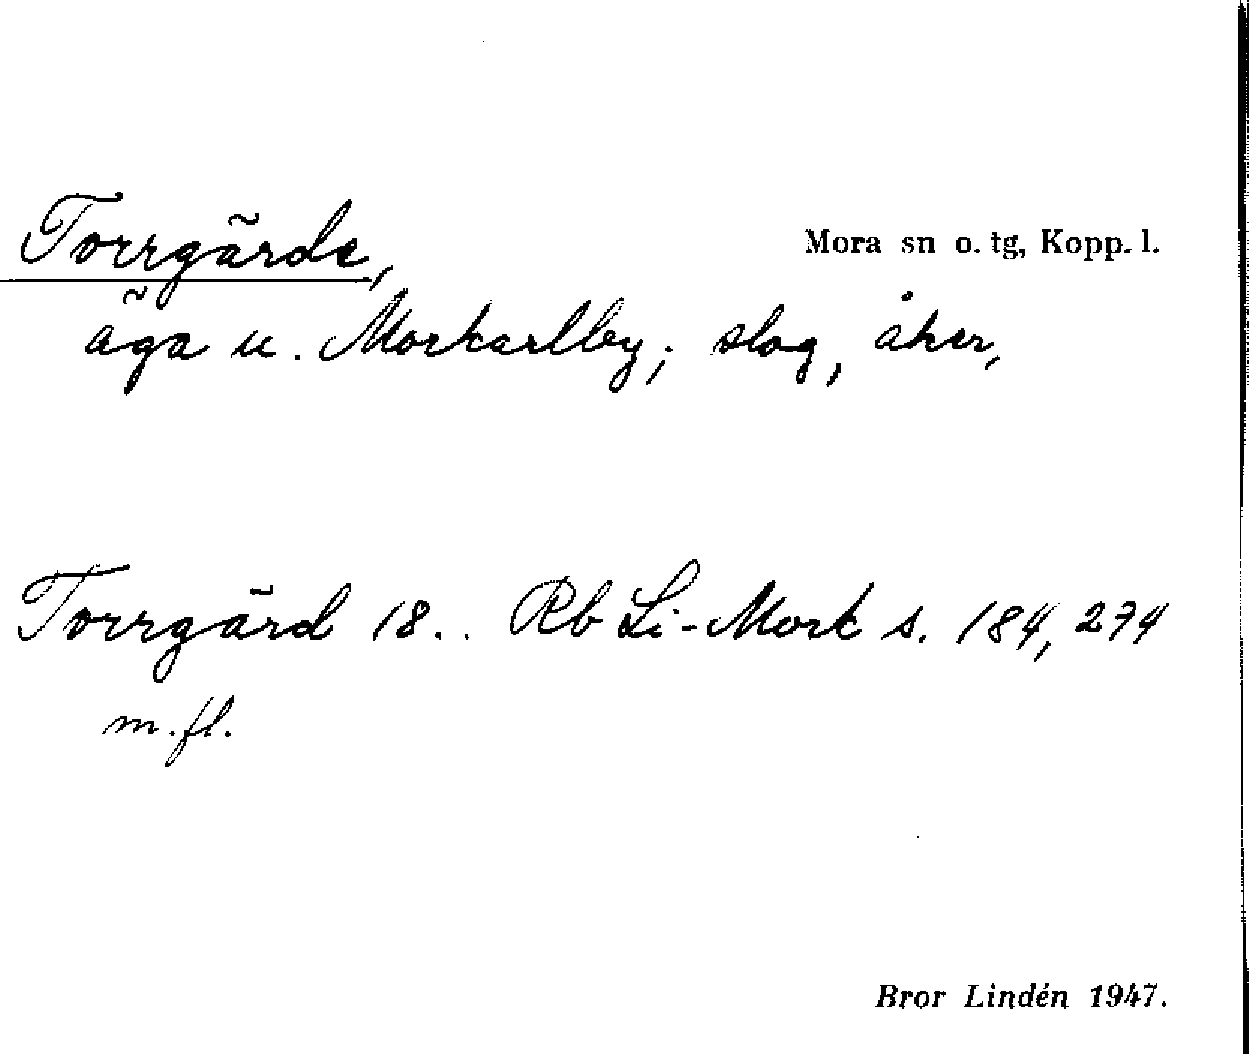 Torrgärde,
Mora sn o. tg, Kopp. l.
äga u. Morkarlby; slog, åker,
Torrgärd 18.. Rb Li-Mork s. 184, 274
m.fl.
Bror Lindén 1947.